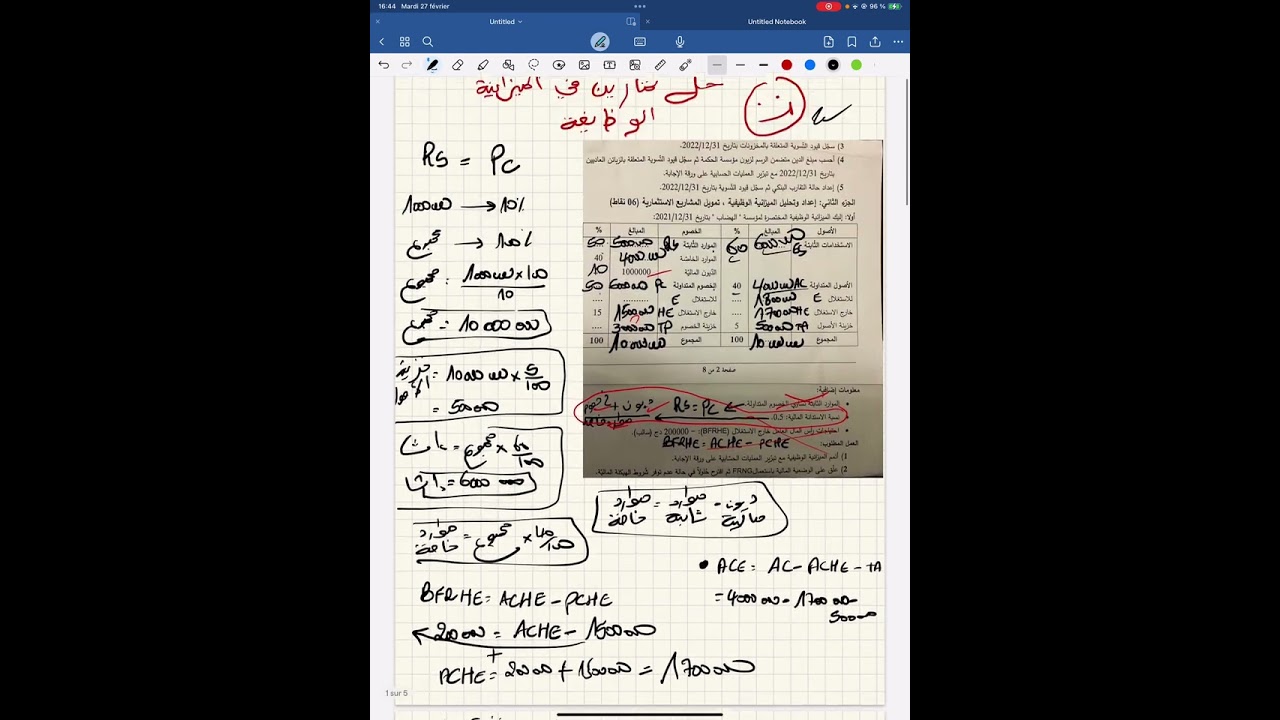 16:44 Mardi 27 février
96 %
Untitled
Untitled Notebook
حل تمارين في الميزانية
الوظيفية
ن
RS = PC
1000000 → 10%
مجموع → 100%
مجموع : 1000000 x 100 / 10
مجموع = 10 000 000
= 10000000 x 5/100
= 500000
مجموع x 60/100
= 6000 000
موارد خاصة = مجموع x 40/100
BFRHE = ACHE - PCHE
200000 = ACHE - 1500000
ACHE = 200000 + 1500000 = 1700000
3) سجّل قيود التسوية المتعلقة بالمخزونات بتاريخ 2022/12/31.
4) أحسب مبلغ الدين متضمن الرسم لزبون مؤسسة الحكمة ثم سجّل قيود التسوية المتعلقة بالزبائن العاديين
بتاريخ 2022/12/31 مع تبرير العمليات الحسابية على ورقة الإجابة.
5) إعداد حالة التقارب البنكي ثم سجّل قيود التسوية بتاريخ 2022/12/31.
الجزء الثاني: إعداد وتحليل الميزانية الوظيفية ، تمويل المشاريع الاستثمارية (06 نقاط)
أولا: إليك الميزانية الوظيفية المختصرة لمؤسسة " الهضاب " بتاريخ 2021/12/31:
الأصول المبالغ % الخصوم المبالغ %
الاستخدامات الثابتة ES 6000000 60 الموارد الثابتة RS 5000000 50
الموارد الخاصة 4000000 40
الديون المالية 1000000 10
الأصول المتداولة AC 4000000 40 الخصوم المتداولة PC 5000000 50
للاستغلال E 1800000 .... للاستغلال E .......... ....
خارج الاستغلال HE 1700000 .... خارج الاستغلال HE 1500000 15
خزينة الأصول TA 500000 5 خزينة الخصوم TP 300000 ....
المجموع 10000000 100 المجموع 10000000 100
صفحة 2 من 8
معلومات إضافية:
• الموارد الثابتة تساوي الخصوم المتداولة. RS = PC
• نسبة الاستدانة المالية: 0.5.
• احتياجات رأس المال العامل خارج الاستغلال (BFRHE): – 200000 دج (سالب).
العمل المطلوب: BFRHE = ACHE - PCHE
1) أتمم الميزانية الوظيفية مع تبرير العمليات الحسابية على ورقة الإجابة.
2) علّق على الوضعية المالية باستعمال FRNG ثم اقترح حلولاً في حالة عدم توفر شروط الهيكلة المالية.
موارد خاصة = موارد ثابتة - ديون مالية
• ACE = AC - ACHE - TA
= 4000000 - 1700000 -
500000
1 sur 5